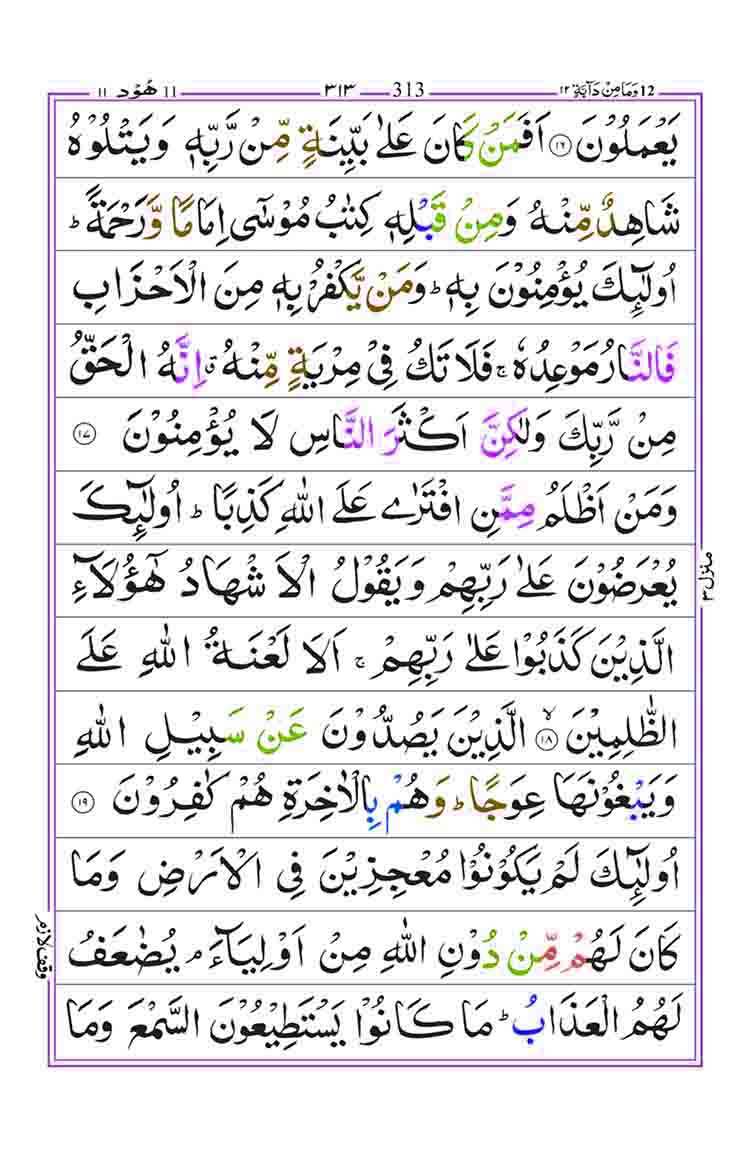 12 وَمَا مِنْ دَآبَّةٍ ١٢ 313 ٣١٣ 11 هُوْد ١١
يَعْمَلُوْنَ ١٦ اَفَمَنْ كَانَ عَلٰى بَيِّنَةٍ مِّنْ رَّبِّهٖ وَيَتْلُوْهُ
شَاهِدٌ مِّنْهُ وَمِنْ قَبْلِهٖ كِتٰبُ مُوْسٰٓى اِمَامًا وَّرَحْمَةً ؕ
اُولٰٓئِكَ يُؤْمِنُوْنَ بِهٖ ؕ وَمَنْ يَّكْفُرْ بِهٖ مِنَ الْاَحْزَابِ
فَالنَّارُ مَوْعِدُهٗ ۚ فَلَا تَكُ فِيْ مِرْيَةٍ مِّنْهُ ۗ اِنَّهُ الْحَقُّ
مِنْ رَّبِّكَ وَلٰكِنَّ اَكْثَرَ النَّاسِ لَا يُؤْمِنُوْنَ ١٧
وَمَنْ اَظْلَمُ مِمَّنِ افْتَرٰى عَلَى اللّٰهِ كَذِبًا ؕ اُولٰٓئِكَ
يُعْرَضُوْنَ عَلٰى رَبِّهِمْ وَيَقُوْلُ الْاَشْهَادُ هٰٓؤُلَآءِ
الَّذِيْنَ كَذَبُوْا عَلٰى رَبِّهِمْ ۚ اَلَا لَعْنَةُ اللّٰهِ عَلَى
الظّٰلِمِيْنَ ۙ ١٨ الَّذِيْنَ يَصُدُّوْنَ عَنْ سَبِيْلِ اللّٰهِ
وَيَبْغُوْنَهَا عِوَجًا ؕ وَهُمْ بِالْاٰخِرَةِ هُمْ كٰفِرُوْنَ ١٩
اُولٰٓئِكَ لَمْ يَكُوْنُوْا مُعْجِزِيْنَ فِي الْاَرْضِ وَمَا
كَانَ لَهُمْ مِّنْ دُوْنِ اللّٰهِ مِنْ اَوْلِيَآءَ ۘ يُضٰعَفُ
لَهُمُ الْعَذَابُ ؕ مَا كَانُوْا يَسْتَطِيْعُوْنَ السَّمْعَ وَمَا
منزل ٣
وقف لازم